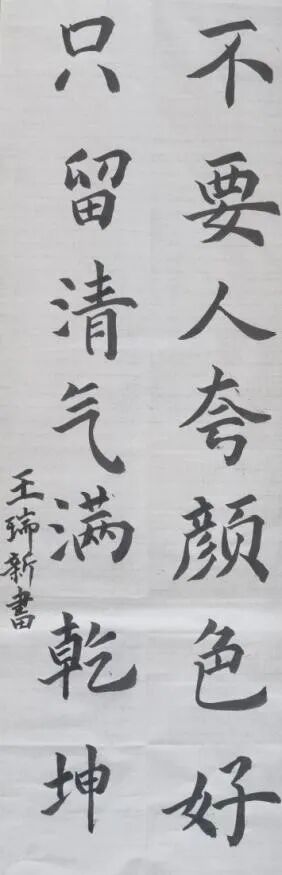 不要人夸颜色好
只留清气满乾坤
王瑞新書